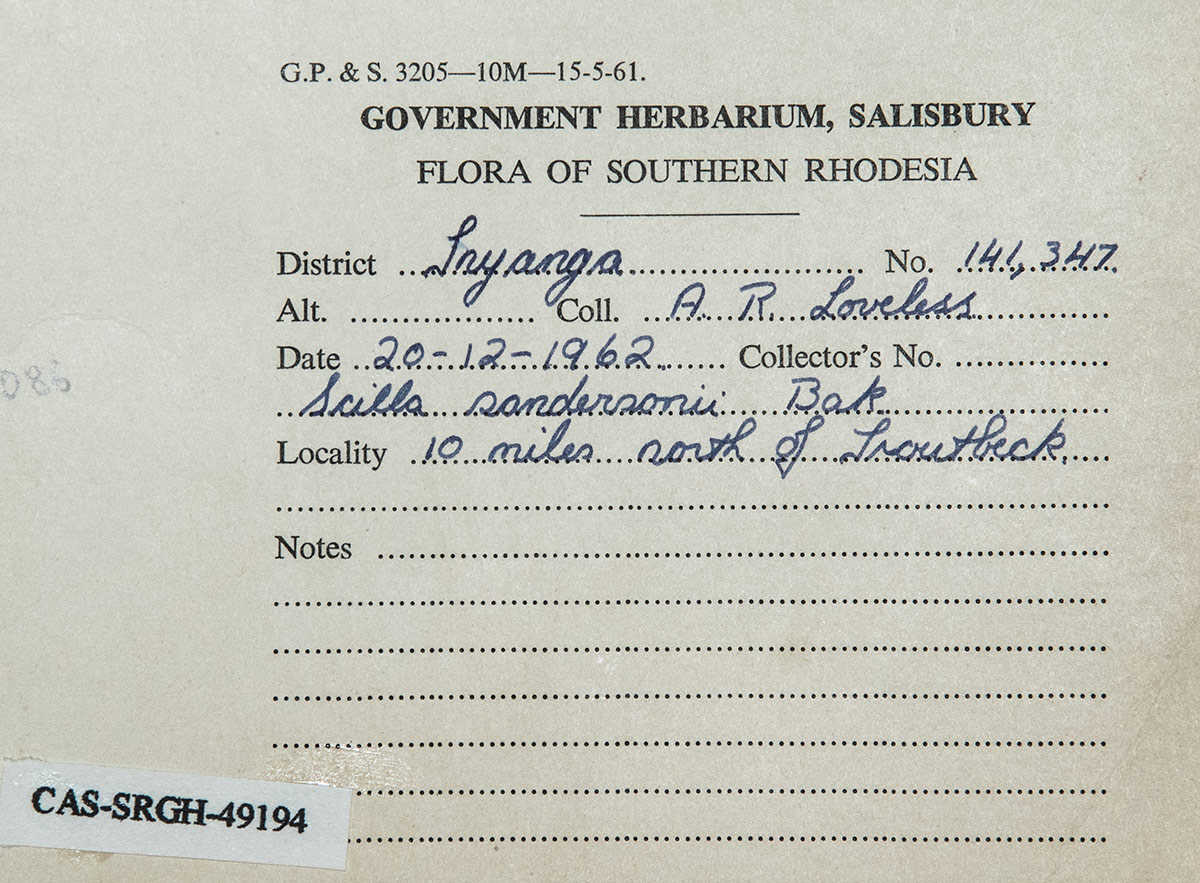 G.P. & S. 3205—10M—15-5-61.
GOVERNMENT HERBARIUM, SALISBURY
FLORA OF SOUTHERN RHODESIA
District Inyanga No. 141,347.
Alt. Coll. A. R. Loveless
Date 20-12-1962. Collector's No.
Scilla sandersonii Bak
Locality 10 miles north of Troutbeck.
Notes
086
CAS-SRGH-49194